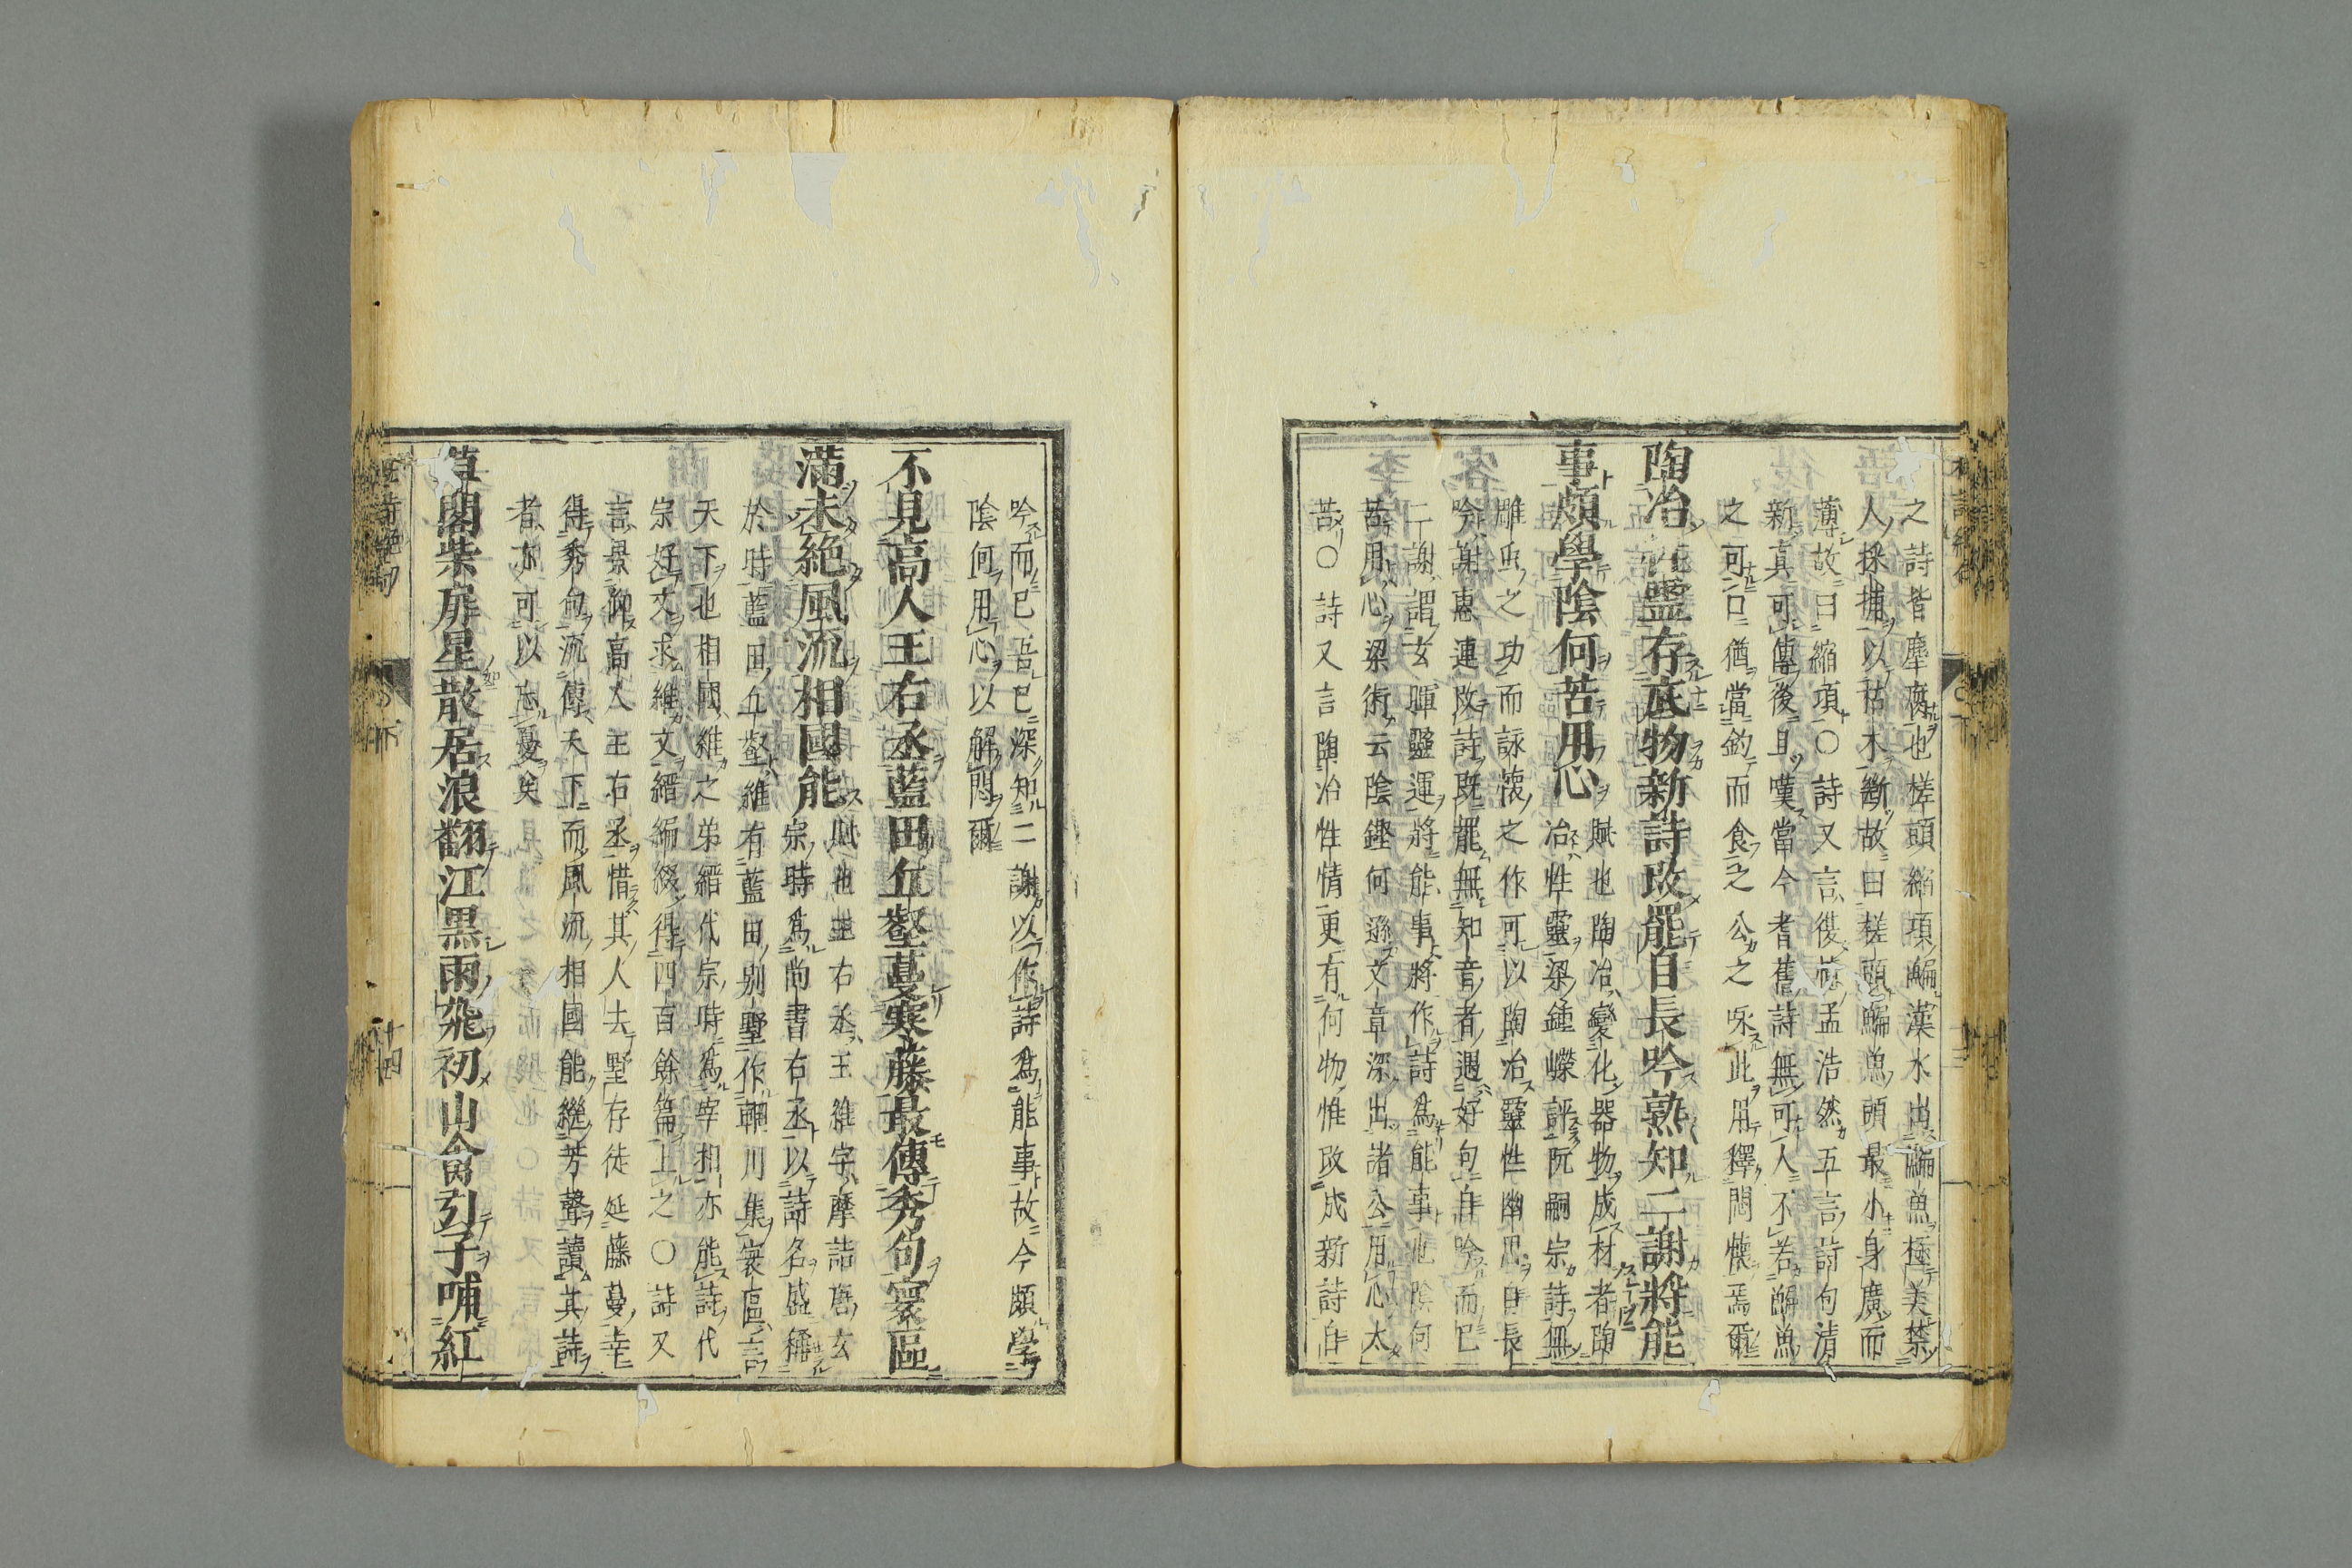 之詩皆麾麾也槎頭縮項鯿漢水出鯿魚極美禁
人採捕以枯木斷故曰槎頭鯿魚頭最小身廣而
薄故曰縮項○詩又言復憶孟浩然五言詩句清
新真可傳後且嘆當今耆舊詩無可人不若鯿魚
之可口猶當釣而食之公之咏此用釋悶懷焉爾
陶冶性靈存底物新詩改罷自長吟熟知二謝將能
事頗學陰何苦用心
賦也陶冶變化器物成材者陶
冶性靈梁鍾嶸評阮嗣宗詩無
雕虫之功而詠懷之作可以陶冶靈性幽思自長
吟謝惠連改詩既罷無知音者遇好句自吟而已
二謝謂玄暉靈運將能事將作詩為能事也陰何
苦用心梁術云陰鏗何遜文章深出諸公用心太
苦○詩又言陶冶性情更有何物惟改成新詩自
吟而已吾已深知二謝以作詩為能事故今頗學
陰何用心以解悶爾
不見高人王右丞藍田丘壑蔓寒藤最傳秀句寰區
滿未絕風流相國能
賦也王右丞王維字摩詰唐玄
宗時為尚書右丞以詩名盛稱
於時藍田丘壑維有藍田別墅作輞川集寰區言
天下也相國維之弟縉代宗時為宰相亦能詩代
宗好文求維文縉編綴得四百餘篇上之○詩又
言景仰高人王右丞惜其人去墅存徒延藤蔓幸
得秀句流傳天下而風流相國能繼芳聲讀其詩
者亦可以忘憂矣
草閣柴扉星散居浪翻江黑雨飛初山禽引子哺紅
十四